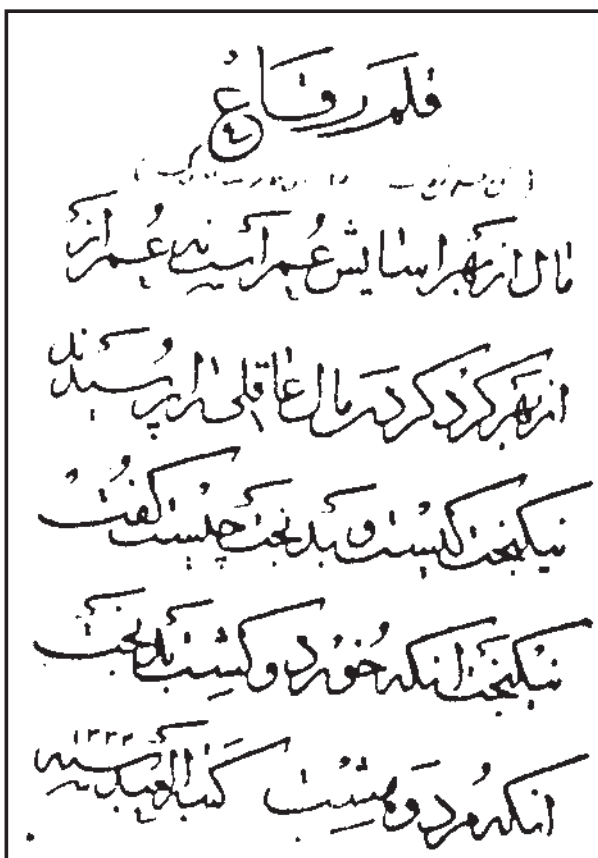 قلم رقاع
مال از بهر اسایش عمر است نه عمر از
از بهر کرد کردن مال عاقلی را پرسیدند
نیکبخت کیست و بدبخت چیست گفت
نیکبخت انکه خورد و کشت بدبخت
انکه مرد و هشت کتبه العبد